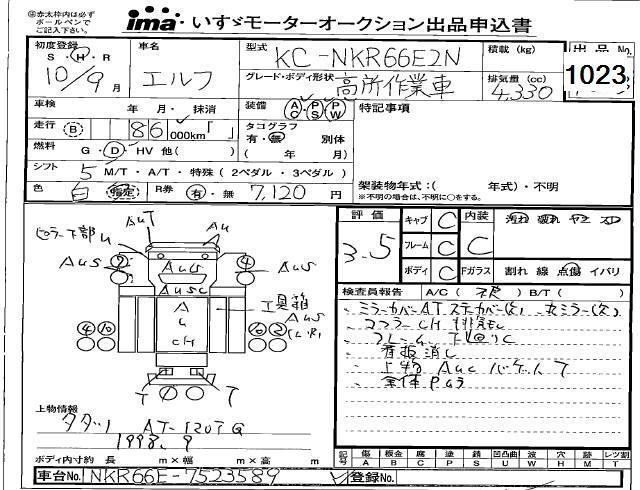 ㊟赤太枠内は必ず
ボールペンで
ご記入下さい。
ima いすゞモーターオークション出品申込書
初度登録
S・H・R
10/9月
車名
エルフ
型式
KC-NKR66E2N
グレード・ボディ形状
高所作業車
積載 (kg)
排気量 (cc)
4,330
出品No.
1023
車検 年 月・抹消
走行 B 86 000km「 」
燃料 G・D・HV 他( )
シフト 5 M/T・A/T・特殊(2ペダル・3ペダル)
色 白 指定 R券 有・無 7,120 円
装備 AC・PS・PW
タコグラフ
有・無 別体
( 年 月)
特記事項
架装物年式:( 年式)・不明
※不明の場合は、不明に○をする。
評価
3.5
キャブ C
フレーム C
ボディ C
内装 C
汚れ 破れ ヤニ スレ
Fガラス 割れ 線 点傷 イバリ
検査員報告 A/C( ) B/T( )
AuT
Au
ピラー下部
AuS
AuS
AuS
AuSC
A
u
CH
工具箱
AuS
(L.R)
4 10
10 2
T T
T T
ミラーカバーAT
マフラーCH
看板消し
上物 AuC バケットT
全体Pムラ
上物情報
タダノ AT-120TG
1998.9
ボディ内寸約 長 m×幅 m×高 m
記号 傷A 板金B 腐C 塗P 錆S 凹凸曲U 波W 穴H 跡M レツ割T
車台No. NKR66E-7523589
登録No.